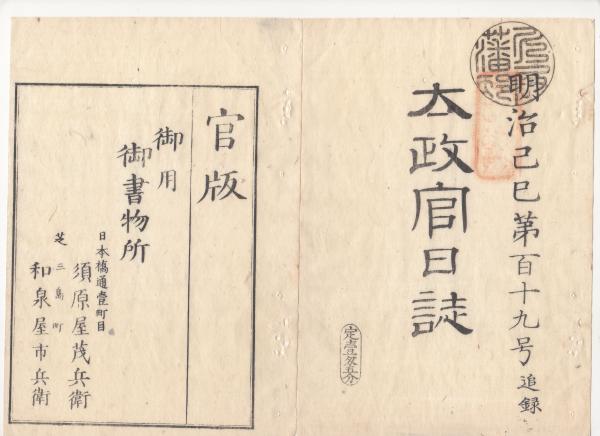 明治己巳第百十九号追録
太政官日誌
定壹匁五分
官版
御用
御書物所
日本橋通壹町目
須原屋茂兵衛
芝三島町
和泉屋市兵衛